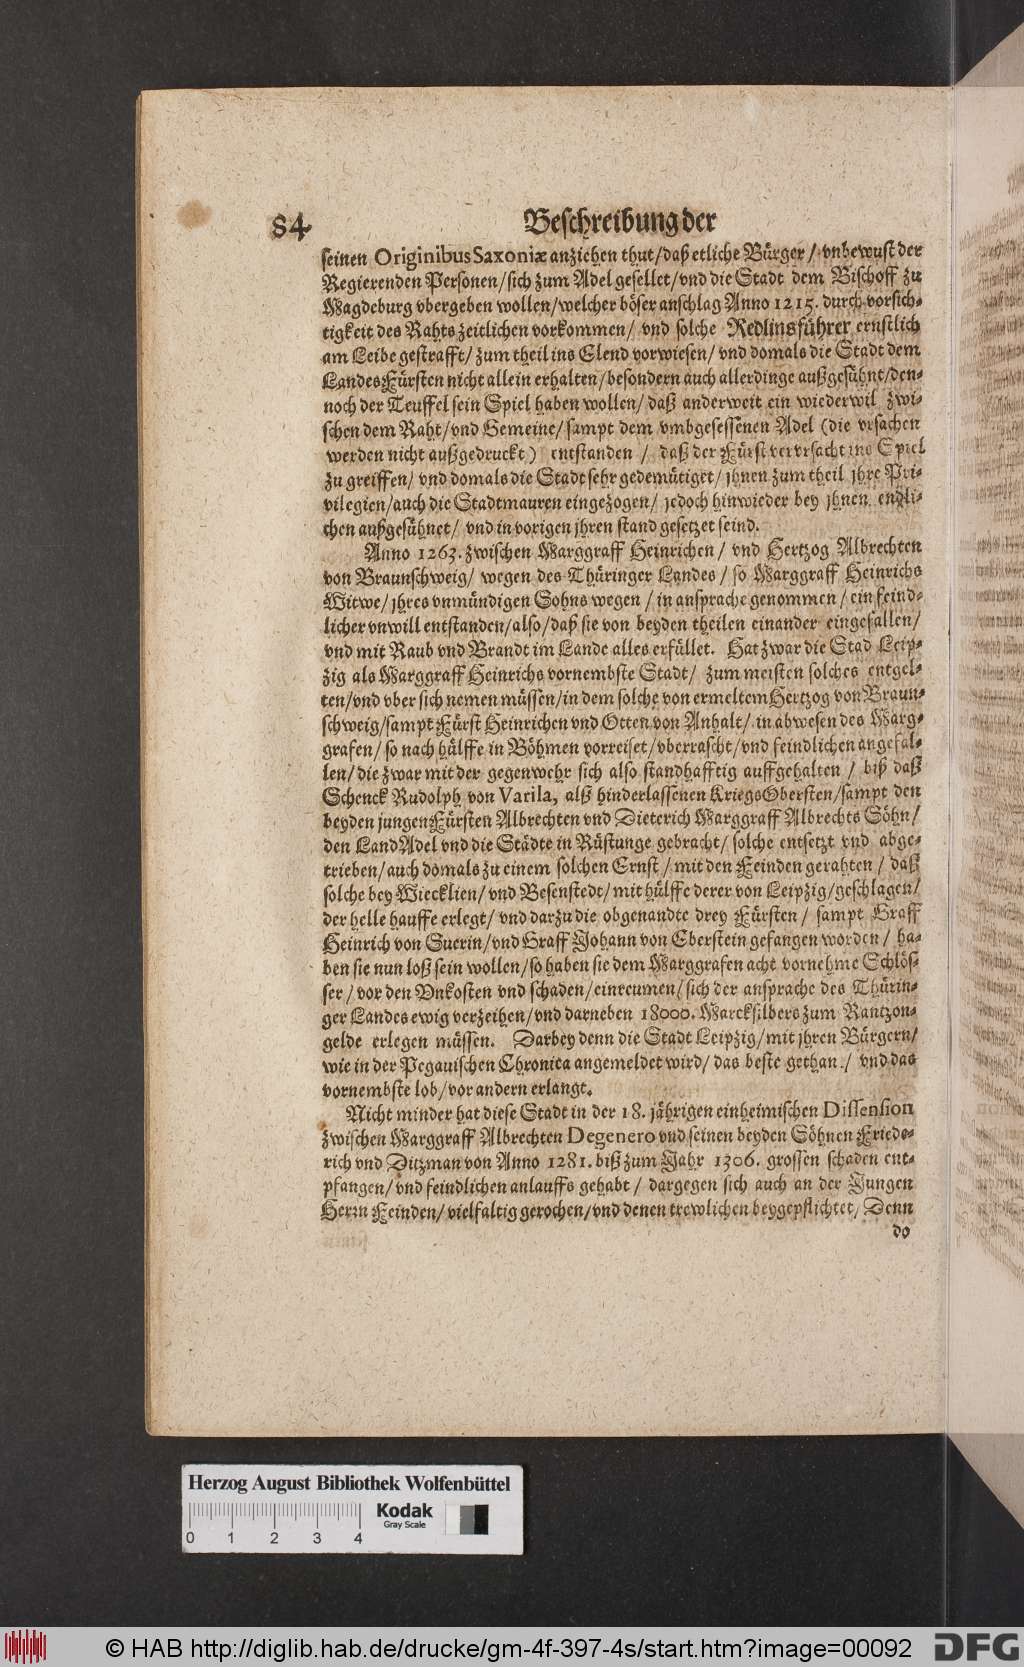 84
Beschreibung der
seinen Originibus Saxoniæ anziehen thut/daß etliche Bürger/ vnbewust der
Regierenden Personen/sich zum Adel gesellet/vnd die Stadt dem Bischoff zu
Magdeburg vbergeben wollen/welcher böser anschlag Anno 1215. durch vorsich-
tigkeit des Rahts zeitlichen vorkommen/ vnd solche Redlinsführer ernstlich
am Leibe gestrafft/ zum theil ins Elend vorwiesen/ vnd domals die Stadt dem
LandesFürsten nicht allein erhalten/besondern auch allerdinge außgesühnt/den-
noch der Teuffel sein Spiel haben wollen/ daß anderweit ein wiederwil zwi-
schen dem Raht/vnd Gemeine/sampt dem vmbgesessenen Adel (die vrsachen
werden nicht außgedruckt) entstanden / daß der Fürst vervrsacht ins Spiel
zu greiffen/ vnd domals die Stadt sehr gedemütiget/ jhnen zum theil jhre Pri-
vilegien/auch die Stadtmauren eingezogen/ jedoch hinwieder bey jhnen endli-
chen außgesühnet/ vnd in vorigen jhren stand gesetzet seind.
Anno 1263. zwischen Marggraff Heinrichen/ vnd Hertzog Albrechten
von Braunschweig/ wegen des Thüringer Landes/ so Marggraff Heinrichs
Witwe/ jhres vnmündigen Sohns wegen / in ansprache genommen/ ein feind-
licher vnwill entstanden/also/daß sie von beyden theilen einander eingefallen/
vnd mit Raub vnd Brandt im Lande alles erfüllet. Hat zwar die Stad Leip-
zig als Marggraff Heinrichs vornembste Stadt/ zum meisten solches entgel-
ten/vnd vber sich nemen müssen/in dem solche von ermeltem Hertzog von Braun-
schweig/sampt Fürst Heinrichen vnd Otten von Anhalt/ in abwesen des Marg-
grafen/ so nach hülffe in Böhmen vorreiset/vberrascht/vnd feindlichen angefal-
len/ die zwar mit der gegenwehr sich also standhafftig auffgehalten / biß daß
Schenck Rudolph von Varila, alß hinderlassenen KriegsObersten/sampt den
beyden jungen Fürsten Albrechten vnd Dieterich Marggraff Albrechts Söhn/
den LandAdel vnd die Städte in Rüstunge gebracht/ solche entsetzt vnd abge-
trieben/auch domals zu einem solchen Ernst / mit den Feinden gerahten / daß
solche bey Wiecklien/ vnd Besenstedt/ mit hülffe derer von Leipzig/geschlagen/
der helle hauffe erlegt/ vnd darzu die obgenandte drey Fürsten / sampt Graff
Heinrich von Suerin/vnd Graff Johann von Eberstein gefangen worden/ ha-
ben sie nun loß sein wollen/so haben sie dem Marggrafen acht vornehme Schlös-
ser / vor den Vnkosten vnd schaden/einreumen/sich der ansprache des Thürin-
ger Landes ewig verzeihen/vnd darneben 18000. Marcksilbers zum Rantzon-
gelde erlegen müssen. Darbey denn die Stadt Leipzig/mit jhren Bürgern/
wie in der Pegauischen Chronica angemeldet wird/ das beste gethan / vnd das
vornembste lob/vor andern erlangt.
Nicht minder hat diese Stadt in der 18. jährigen einheimischen Dissension
zwischen Marggraff Albrechten Degenero vnd seinen beyden Söhnen Friede-
rich vnd Ditzman von Anno 1281. biß zum Jahr 1306. grossen schaden ent-
pfangen/vnd feindlichen anlauffs gehabt / dargegen sich auch an der Jungen
Herrn Feinden/vielfaltig gerochen/vnd denen trewlichen beygepflichtet/ Denn
do
Herzog August Bibliothek Wolfenbüttel
Kodak
Gray Scale
0 1 2 3 4
© HAB http://diglib.hab.de/drucke/gm-4f-397-4s/start.htm?image=00092
DFG